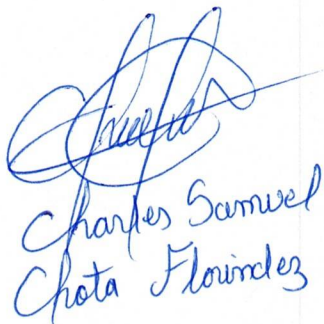 Charles Samuel
Chota Florindez